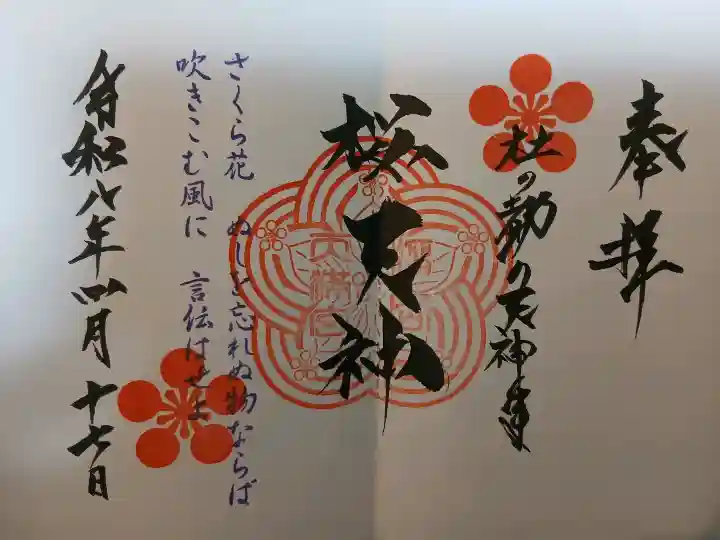 奉拝
杜の勤の天神妻
桜天神
さくら花 ぬしを忘れぬ物ならば
吹きこむ風に 言伝はせよ
令和八年四月十七日